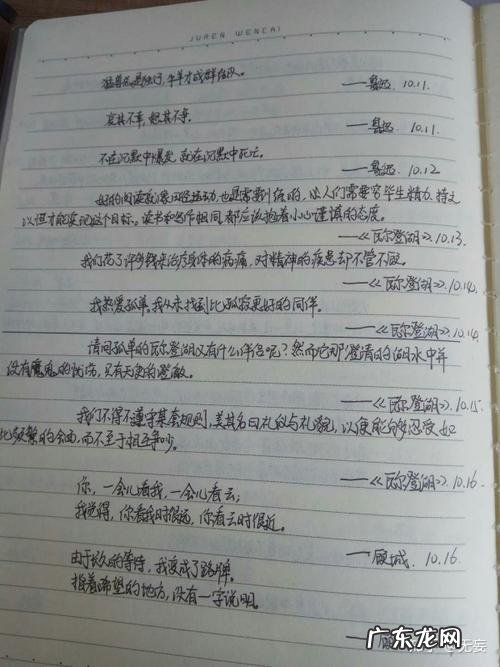 JUREN WENCAI
猛兽总是独行,牛羊才成群结队。
——鲁迅. 10.11.
哀其不幸,怒其不争。
——鲁迅. 10.11
不在沉默中爆发,就在沉默中死亡。
——鲁迅. 10.12
好的阅读就像田径运动,也是需要训练的,必人们需要穷毕生精力,持之
以恒才能实现这个目标。读书和写作相同,都应该抱着小心谨慎的态度。
——《瓦尔登湖》. 10.13.
我们花了许多钱来治疗身体的病痛,对精神的疾患却不管不顾。
——《瓦尔登湖》. 10.14.
我热爱孤单。我从未找到比孤寂更好的同伴。
——《瓦尔登湖》. 10.14
请问孤单的瓦尔登湖又有什么伴侣呢?然而它那澄清的湖水中并
没有魔鬼的忧伤,只有天使的澄澈。
——《瓦尔登湖》. 10.15.
我们不得不遵守某套规则,美其名曰礼仪与礼貌,以便能够忍受如
此频繁的会面,而不至于相互争吵。
——《瓦尔登湖》. 10.16.
你,一会儿看我,一会儿看云;
我觉得,你看我时很远,你看云时很近。
——顾城. 10.16.
由于的等待,我变成了路牌。
指着希望的地方,没有一字说明。
——顾
无妄
广东龙网